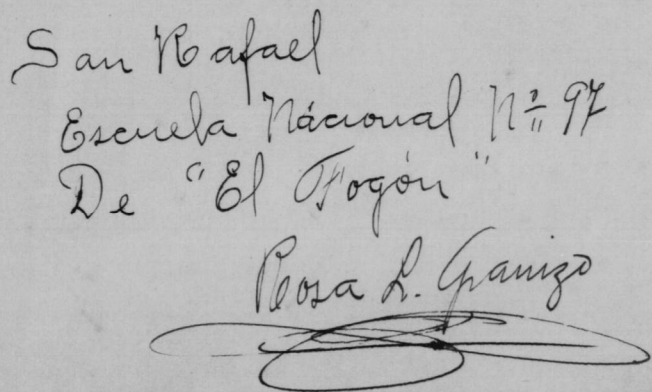 San Rafael
Escuela Nácional Nº 97
De "El Fogón"
Rosa L. Granizo